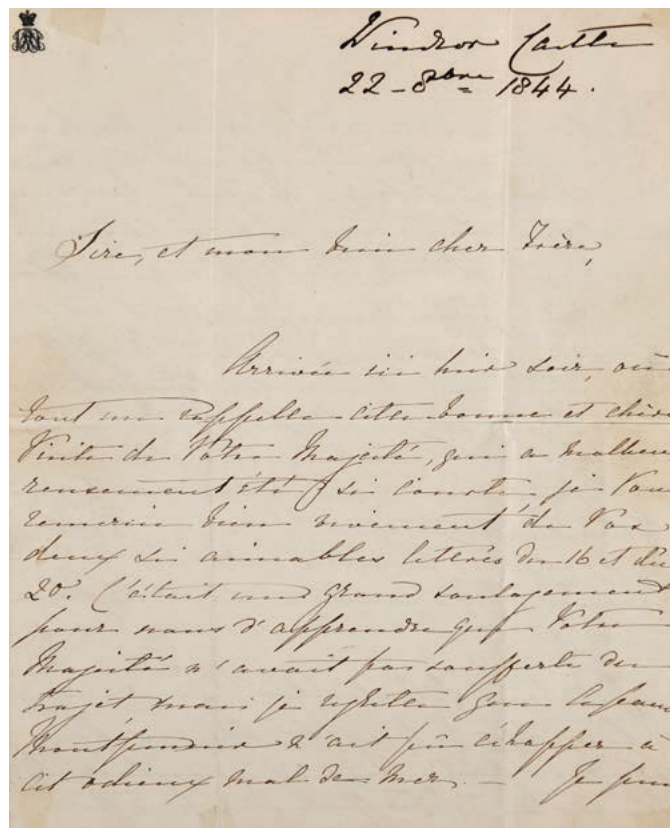 Windsor Castle
22 - 8bre 1844.
Sire, et mon bien cher Frère,
Arrivée ici hier soir, où
tout me rappelle cette bonne et chère
Visite de Votre Majesté, qui a malheu
reusement été si courte, je Vous
remercie bien vivement de Vos
deux si aimables lettres du 16 et du
20. C'était un grand soulagement
pour nous d'apprendre que Votre
Majesté n'avait pas soufferte du
trajet mais je regrette que
Montpensier n'ait pû échapper à
cet odieux mal de mer. — Je